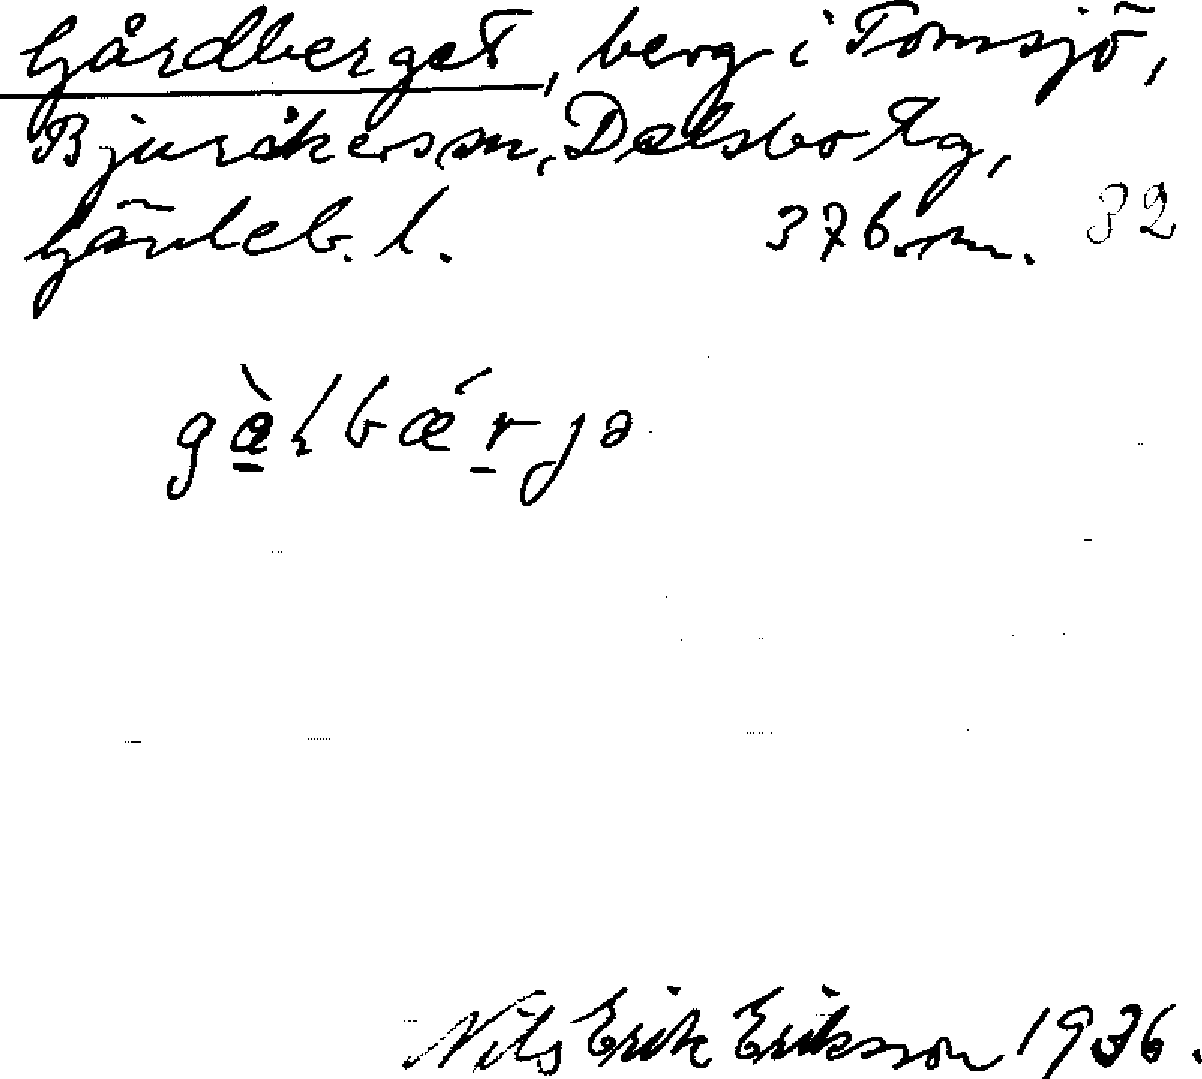 Gårdberget, berg i Tomsjö,
Bjuråkers sn, Delsbo tg,
Gävleb. l. 376 m. 32
gàɫbǽrjə
Nils Erik Eriksson 1936.